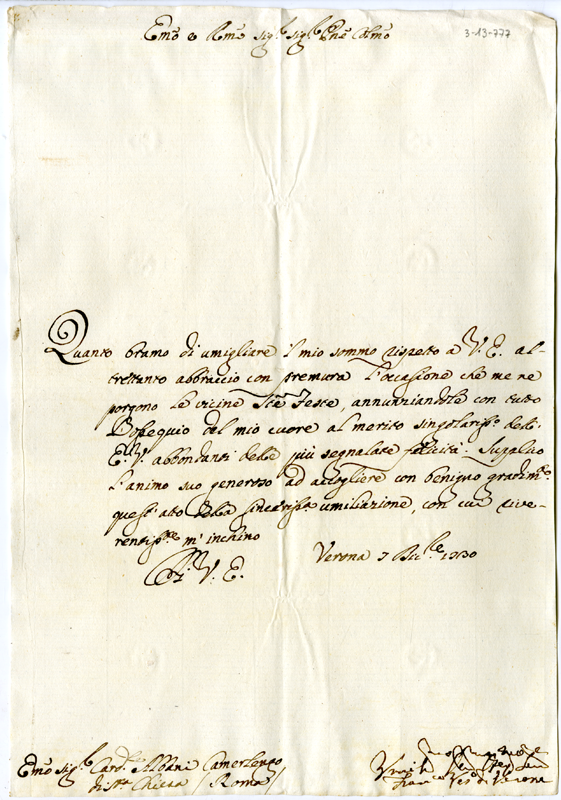 Emo e Rmo Sigr Sigr Pne Colmo
3-13-777
Quanto bramo di umigliare il mio sommo rispetto a V. E. al-
trettanto abbraccio con premura l'occasione che me ne
porgono le vicine Ste Feste, annunziandole con tutto
l'ossequio del mio cuore al merito singolarisso dell'
E. V. abbondanti delle più segnalate felicità. Supplico
l'animo suo generoso ad accogliere con benigno gradimto
quest' atto della sincerissa umiliazione, con cui rive-
rentisste m'inchino
Di V. E.
Verona 7 Bre 1730
Emo Sigr Cardle Albani Camerlengo
di Sta Chiesa / Roma /
Umo
Franco Vo di Verona